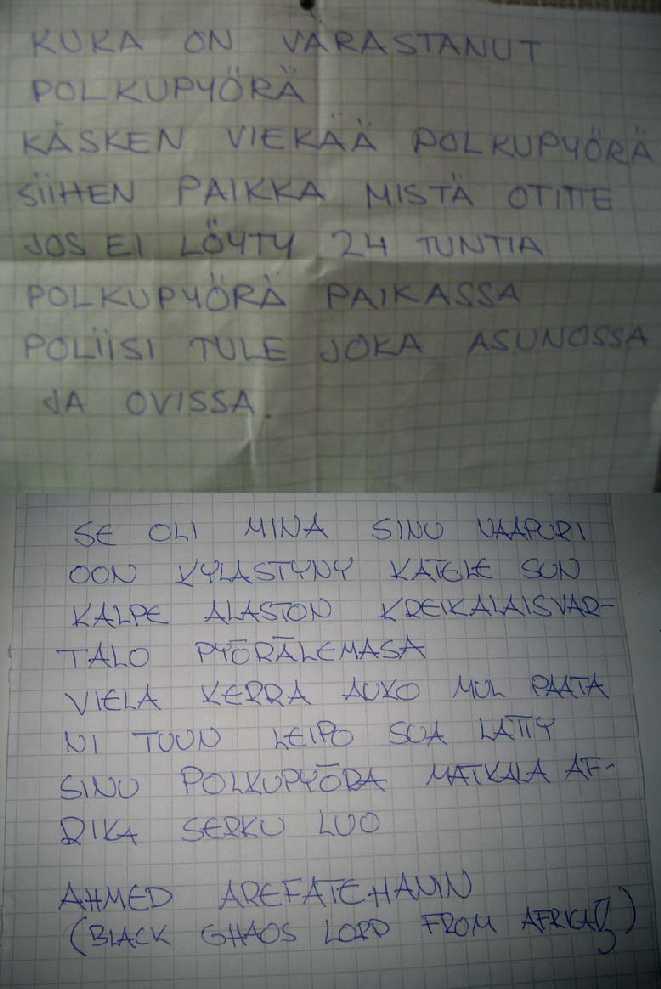 KUKA ON VARASTANUT
POLKUPYÖRÄ
KÄSKEN VIEKÄÄ POLKUPYÖRÄ
SIIHEN PAIKKA MISTÄ OTITTE
JOS EI LÖYTY 24 TUNTIA
POLKUPYÖRÄ PAIKASSA
POLIISI TULE JOKA ASUNOSSA
JA OVISSA.
SE OLI MINÄ SINU VAAPURI
OON KYLASTYNY KATELE SUN
KALPE ALASTON KREIKALAISVAR-
TALO PYÖRÄLEMASA
VIELA KERRA AUKO MUL PAATA
NI TUUN LEIPO SUA LATTY
SINU POLKUPYÖRA MATKALA AF-
RIKA SERKU LUO
AHMED AREFATE-HANIN
(BLACK GHAOS LORD FROM AFRICA)